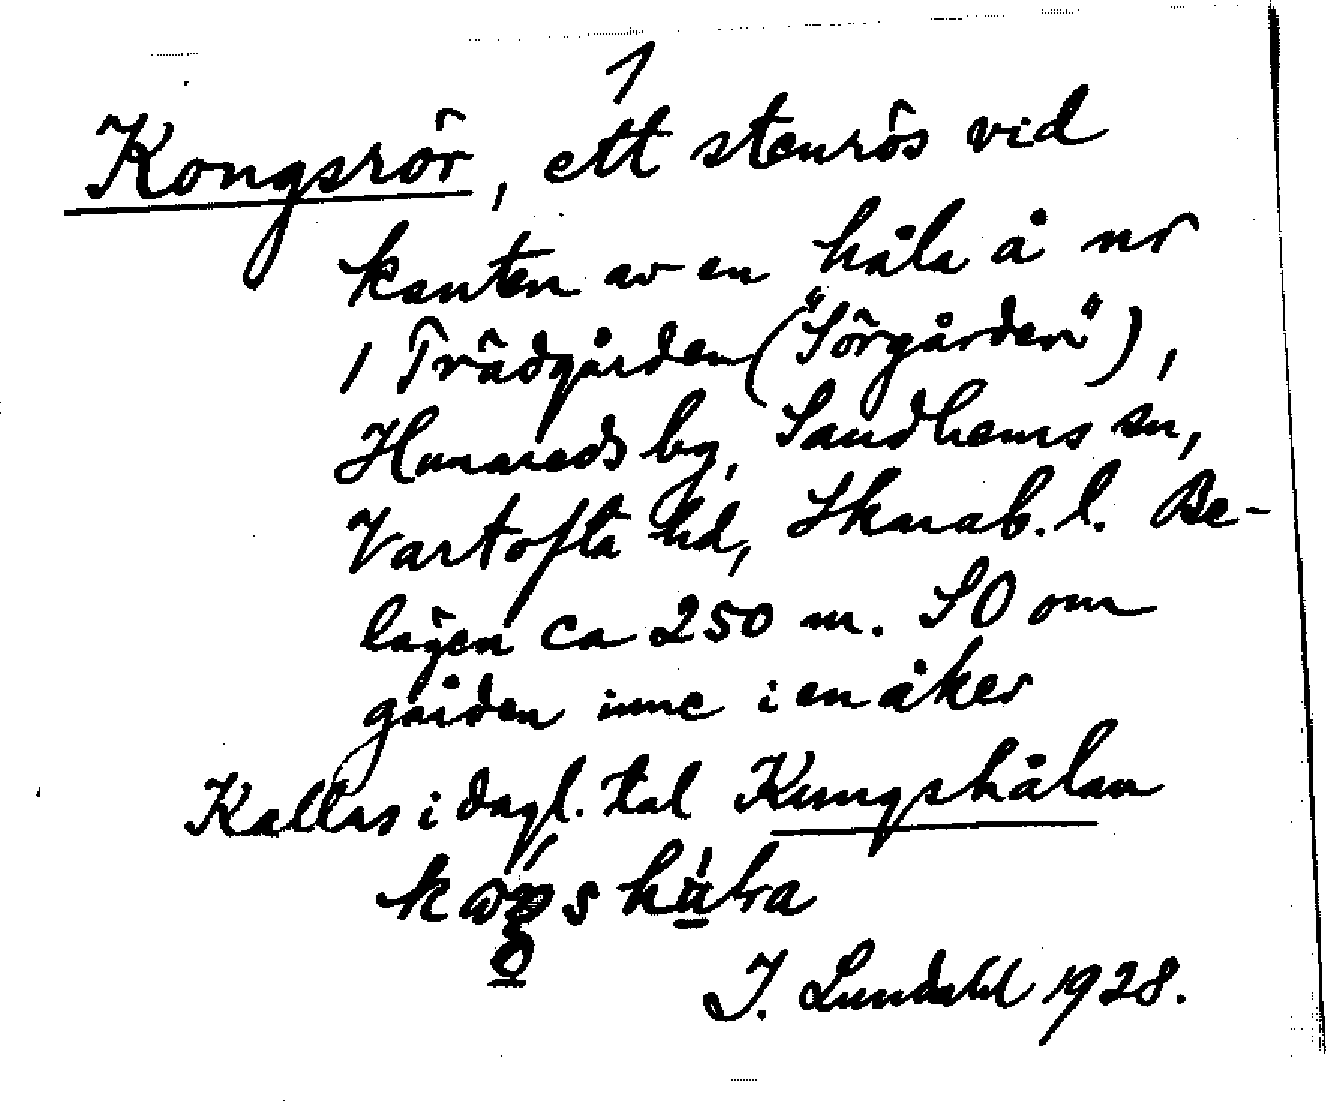 1
Kongsrör, ett stenrös vid
kanten av en håla å nr
1 Trädgården ("Sörgården"),
Hunnareds by, Sandhems sn,
Vartofta hd, Skarab. l. Be-
lägen ca 250 m. SO om
gården inne i en åker
Kallas i dagl. tal Kungshålan
I. Lundahl 1928.